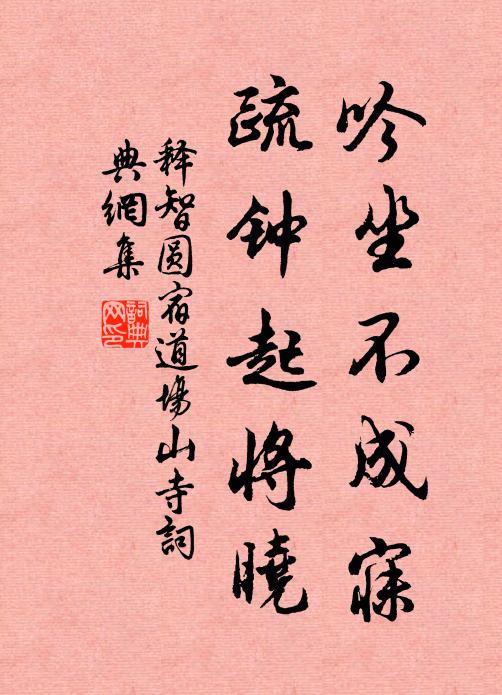 吟坐不成寐
疏钟起将曉
释智圆宿道場山寺詞
典網集
詞典网印